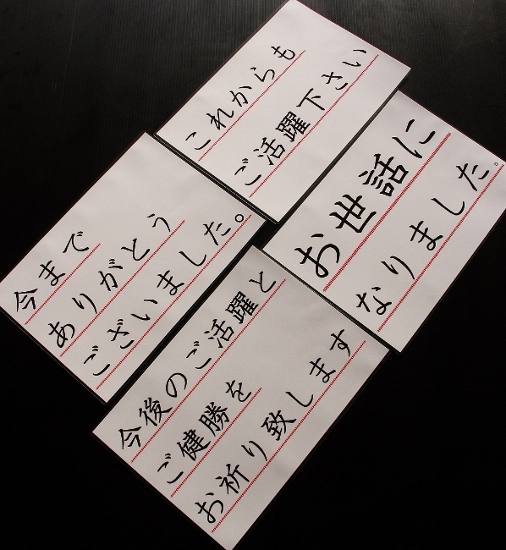 これからも
ご活躍下さい
お世話に
なりました。
今まで
ありがとう
ございました。
今後のご活躍と
ご健勝を
お祈り致します